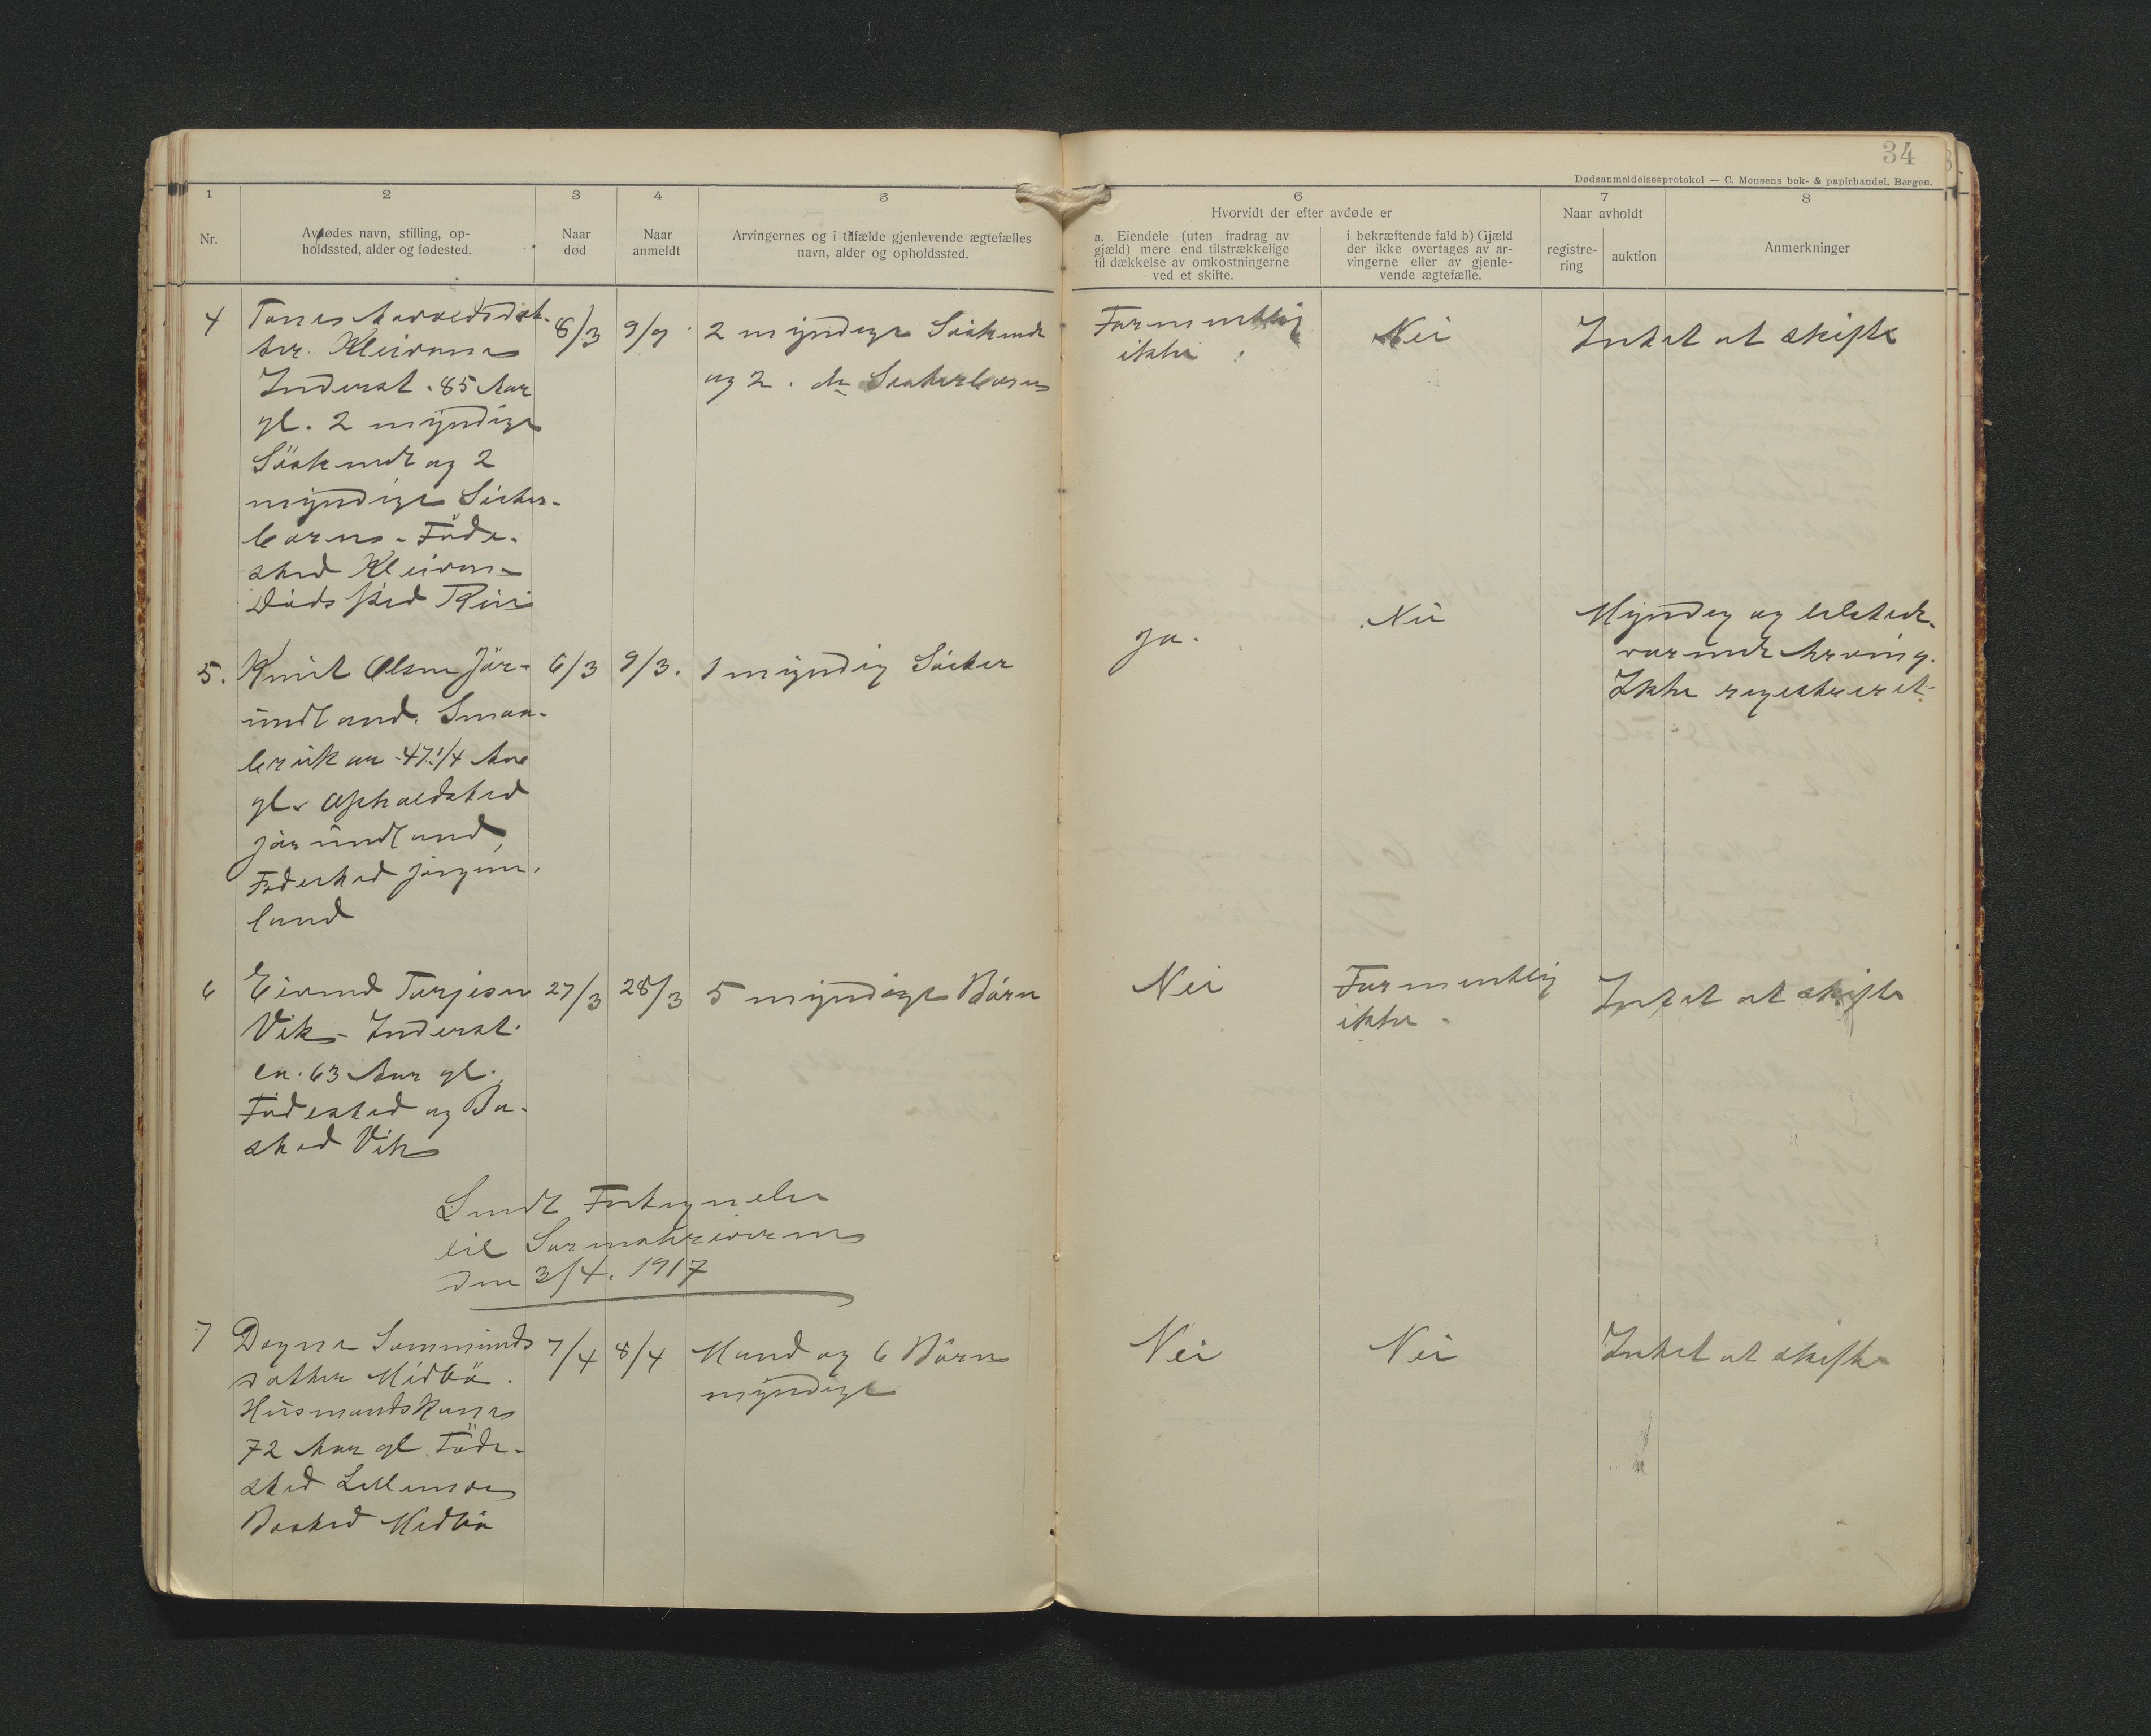 34
Dødsanmeldelsesprotokol — C. Monsens bok- & papirhandel, Bergen.
1 2 3 4 5 6 7 8
Nr.
Avdødes navn, stilling, op-
holdssted, alder og fødested.
Naar
død
Naar
anmeldt
Arvingernes og i tilfælde gjenlevende ægtefælles
navn, alder og opholdssted.
Hvorvidt der efter avdøde er
a. Eiendele (uten fradrag av
gjæld) mere end tilstrækkelige
til dækkelse av omkostningerne
ved et skifte.
i bekræftende fald b) Gjæld
der ikke overtages av ar-
vingerne eller av gjenle-
vende ægtefælle.
Naar avholdt
registre-
ring
auktion
Anmerkninger
4
ter. Kleivane
Inderst. 85 Aar
gl. 2 myndige
Söskende og 2
myndige Söster-
börns - Föde-
sted Kleivan -
Dödssted
8/3
9/9
2 myndige Söskende
og 2. do Sösterbörn
Formentlig
ikke
Nei
Intet at skifte
5.
Knut Olsen Jör-
undland. Smaa-
bruker 47 1/4 Aar
gl. Opholdsted
Jörundland,
Födested Jörgun-
land
6/3
9/3.
1 myndig Söster
Ja.
Nei
Myndig og tilstede-
værende Arving.
Ikke registreret
6
Eivind Terjesen
Vik - Inderst.
ca. 63 Aar gl.
Födested og Bo-
sted Vik
27/3
28/3
5 myndige Börn
Nei
Formentlig
ikke -
Intet at skifte
Sendt Fortegnelse
til Sorenskriveren
den 3/4. 1917
7
Dagne Sammunds
datter Midbö.
Husmandskone
72 Aar gl. Föde-
sted
Bosted Midbö
7/4
8/4
Mand og 6 Börn
myndige
Nei
Nei
Intet at skifte